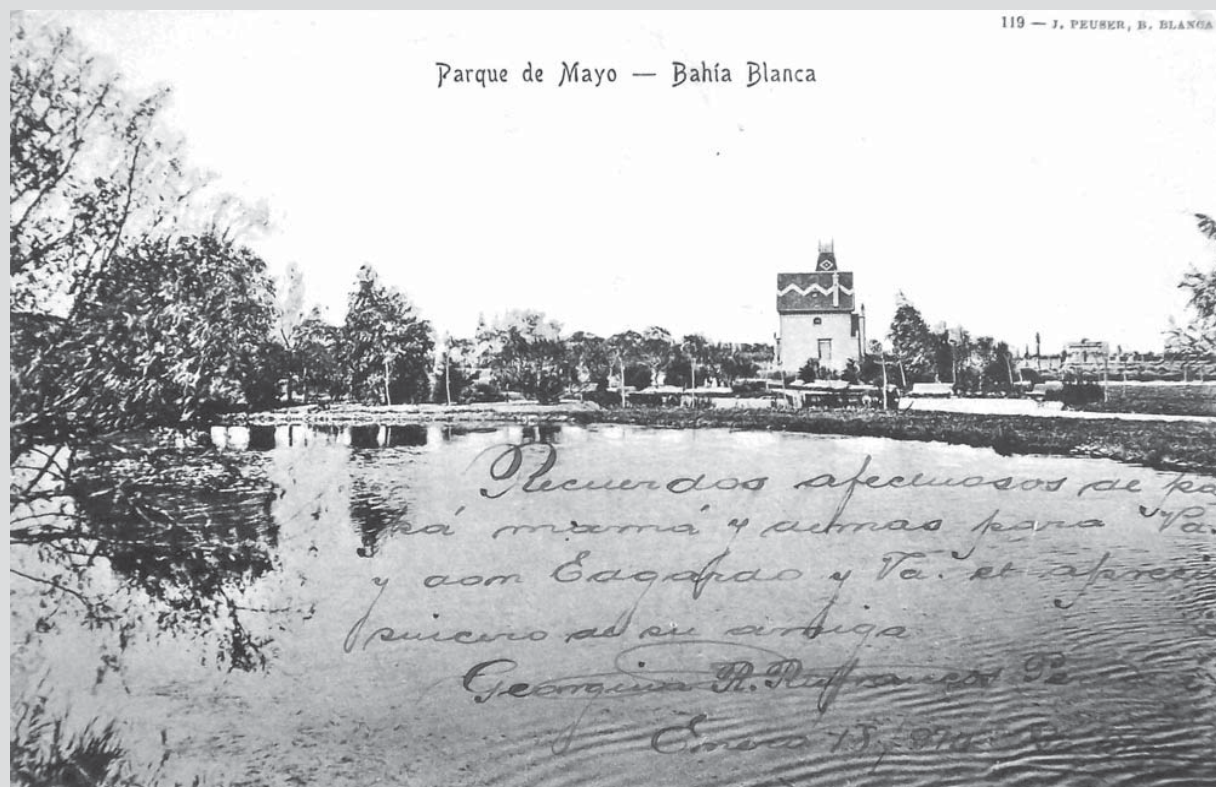 119 — J. PEUSER, B. BLANCA
Parque de Mayo — Bahía Blanca
Recuerdos afectuosos de pa
pá mamá y demas para Va
y don Edgardo y Va. el apreci
sincero de su amiga
Georgina R.
Enero 15,